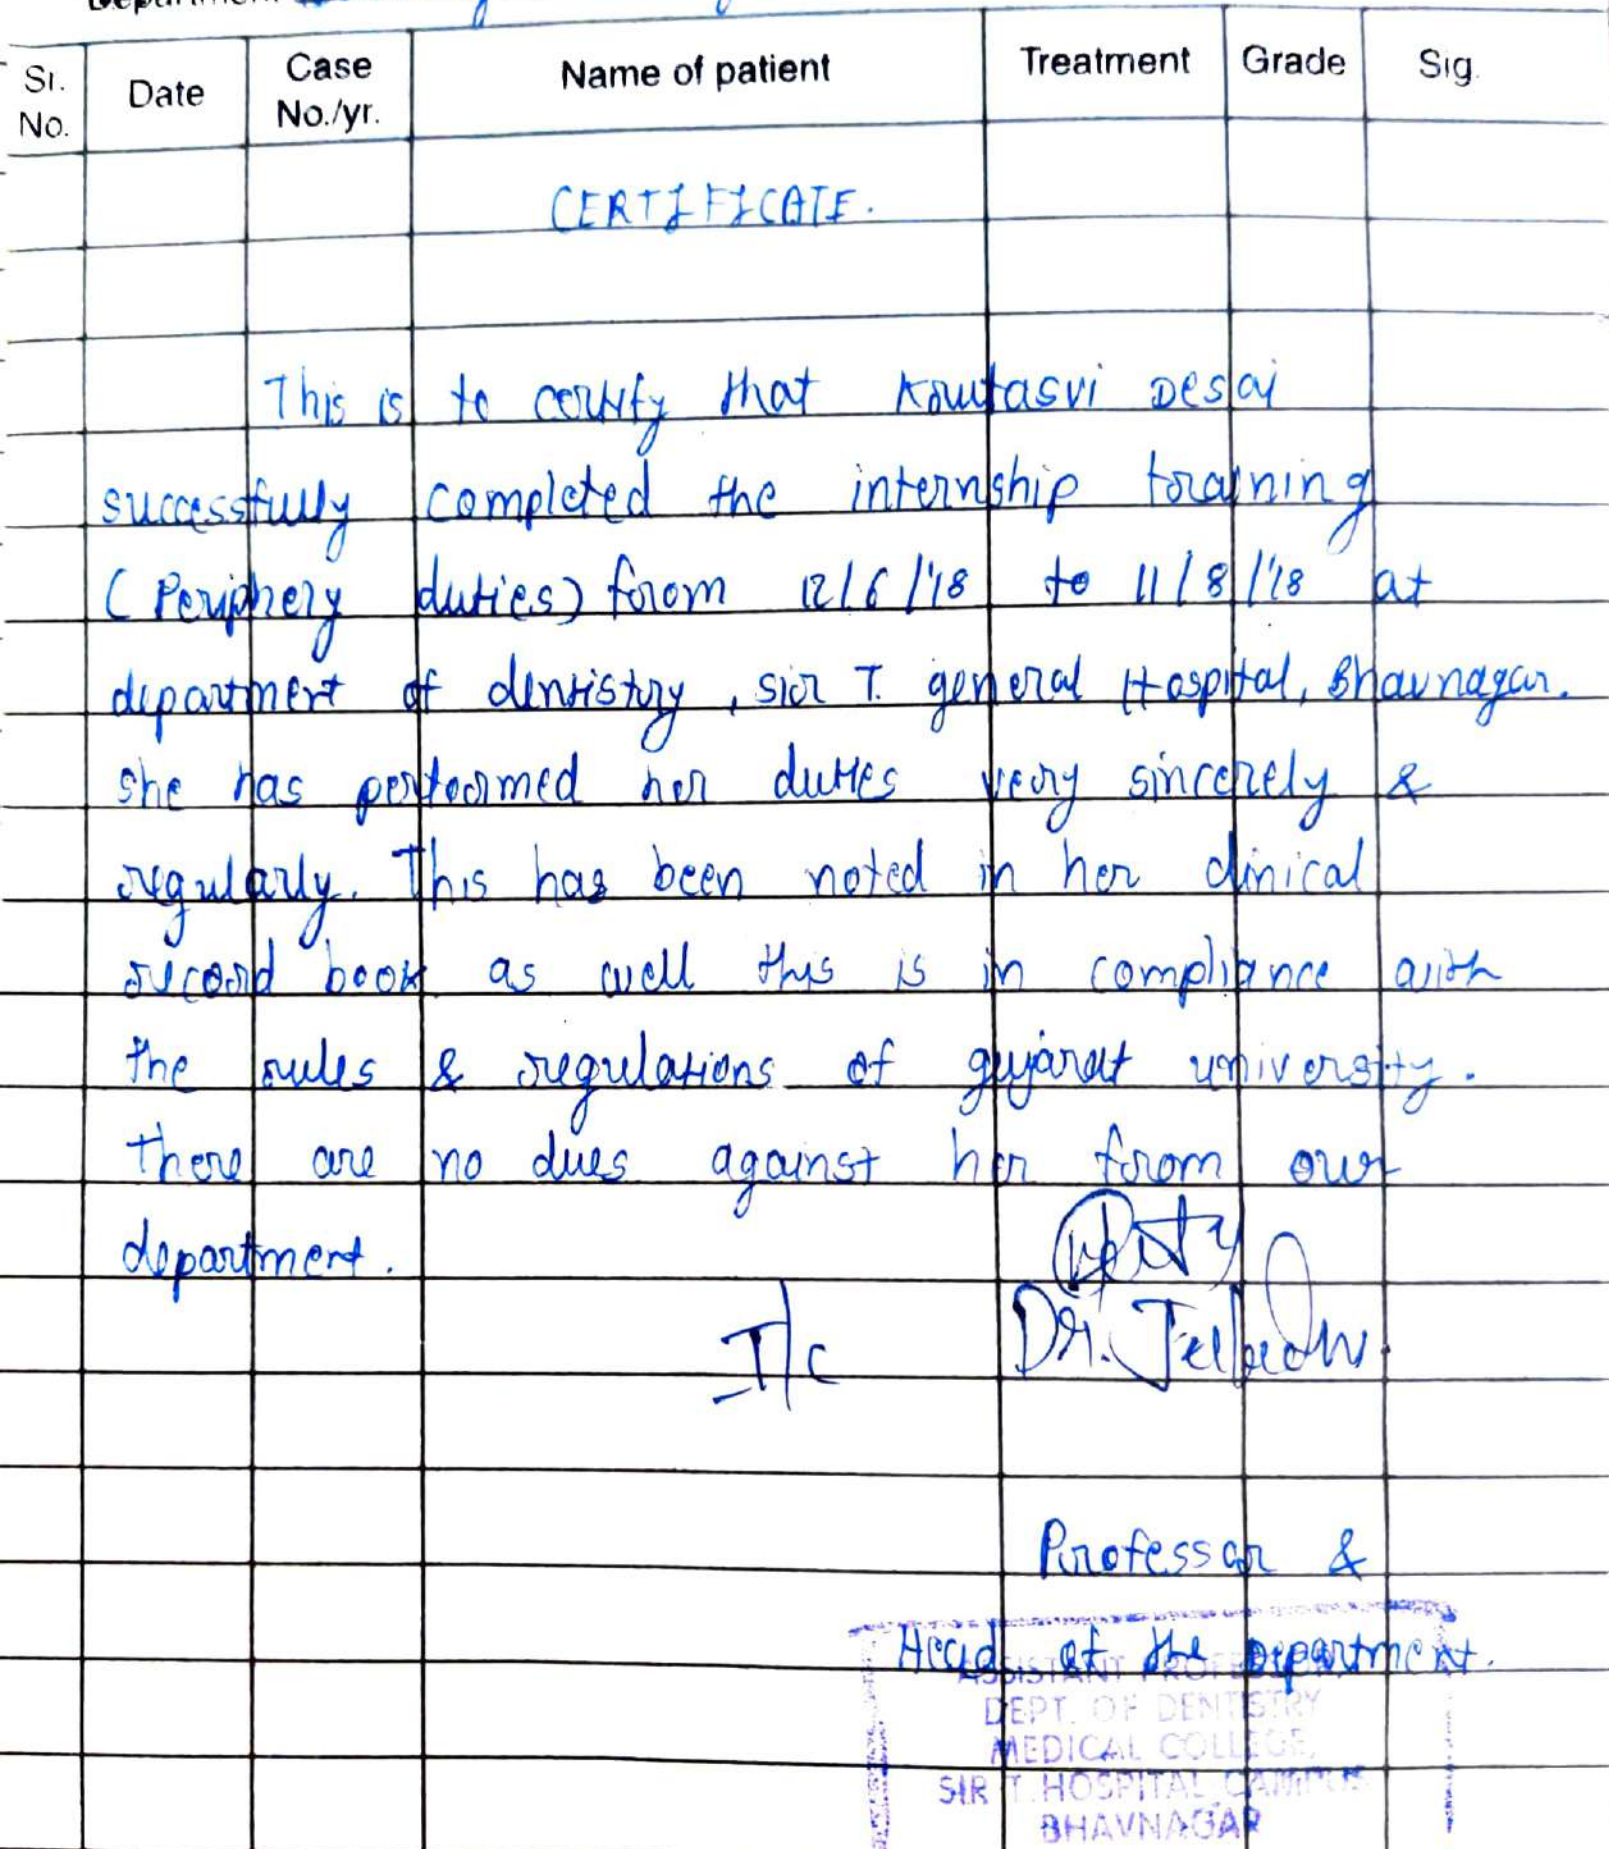 Sr. No. Date Case No./yr. Name of patient Treatment Grade Sig.
CERTIFICATE.
This is to certify that Krutasvi Desai
successfully completed the internship training
(Periphery duties) from 12/6/'18 to 11/8/'18 at
department of dentistry, sir T. general Hospital, Bhavnagar.
she has performed her duties very sincerely &
regularly. This has been noted in her clinical
record book as well this is in compliance with
the rules & regulations of gujarat university.
there are no dues against her from our
department.
I/c Dr.
Professor &
Head of the Department.
ASSISTANT PROFESSOR
DEPT. OF DENTISTRY
MEDICAL COLLEGE,
SIR T. HOSPITAL CAMPUS
BHAVNAGAR